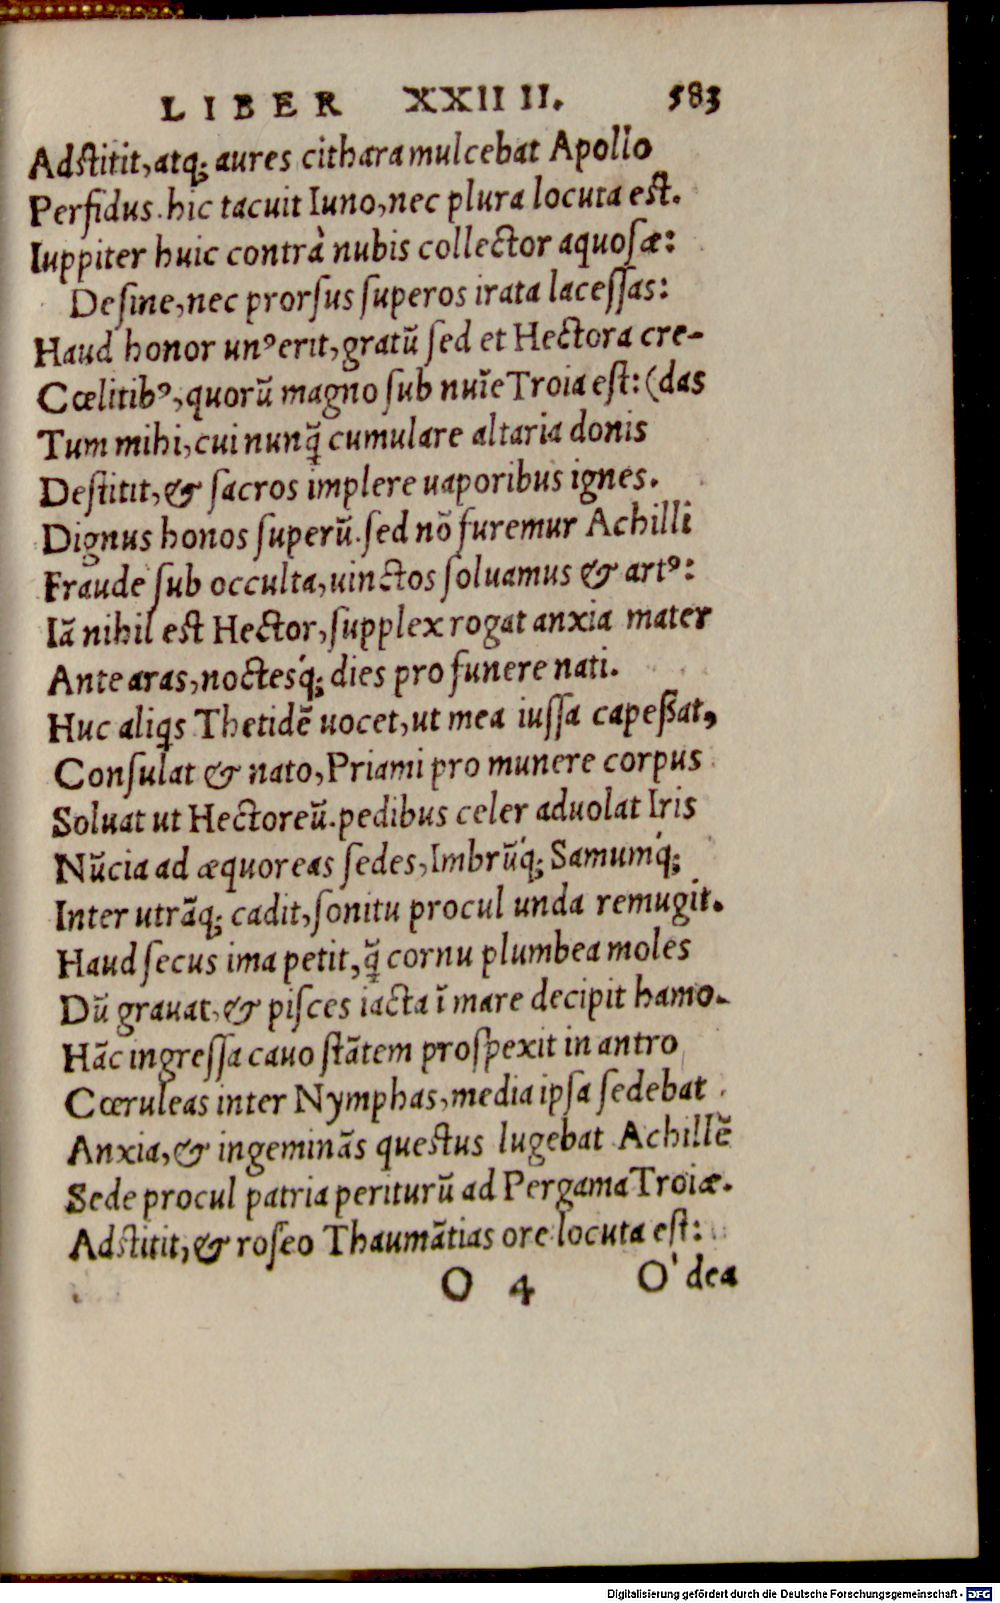 LIBER XXIIII. 583
Adstitit, atq; aures cithara mulcebat Apollo
Perfidus. hic tacuit Iuno, nec plura locuta est.
Iuppiter huic contrà nubis collector aquosæ:
Desine, nec prorsus superos irata lacessas:
Haud honor unꝰ erit, gratū sed et Hectora cre-
Cœlitibꝰ, quorū magno sub nuīe Troia est: (das
Tum mihi, cui nunq̄ cumulare altaria donis
Destitit, & sacros implere uaporibus ignes.
Dignus honos superū. sed nō furemur Achilli
Fraude sub occulta, uinctos soluamus & artꝰ:
Iā nihil est Hector, supplex rogat anxia mater
Ante aras, noctesq́; dies pro funere nati.
Huc aliqs Thetidē uocet, ut mea iussa capeßat,
Consulat & nato, Priami pro munere corpus
Soluat ut Hectoreū. pedibus celer aduolat Iris
Nūcia ad æquoreas sedes, Imbrūq́; Samumq́;
Inter utrāq; cadit, sonitu procul unda remugit.
Haud secus ima petit, q̄ cornu plumbea moles
Dū grauat, & pisces iacta ī mare decipit hamo.
Hāc ingressa cauo stātem prospexit in antro
Cœruleas inter Nymphas, media ipsa sedebat
Anxia, & ingeminās questus lugebat Achillē
Sede procul patria periturū ad Pergama Troiæ.
Adstitit, & roseo Thaumātias ore locuta est:
O 4 O' dea
Digitalisierung gefördert durch die Deutsche Forschungsgemeinschaft - DFG